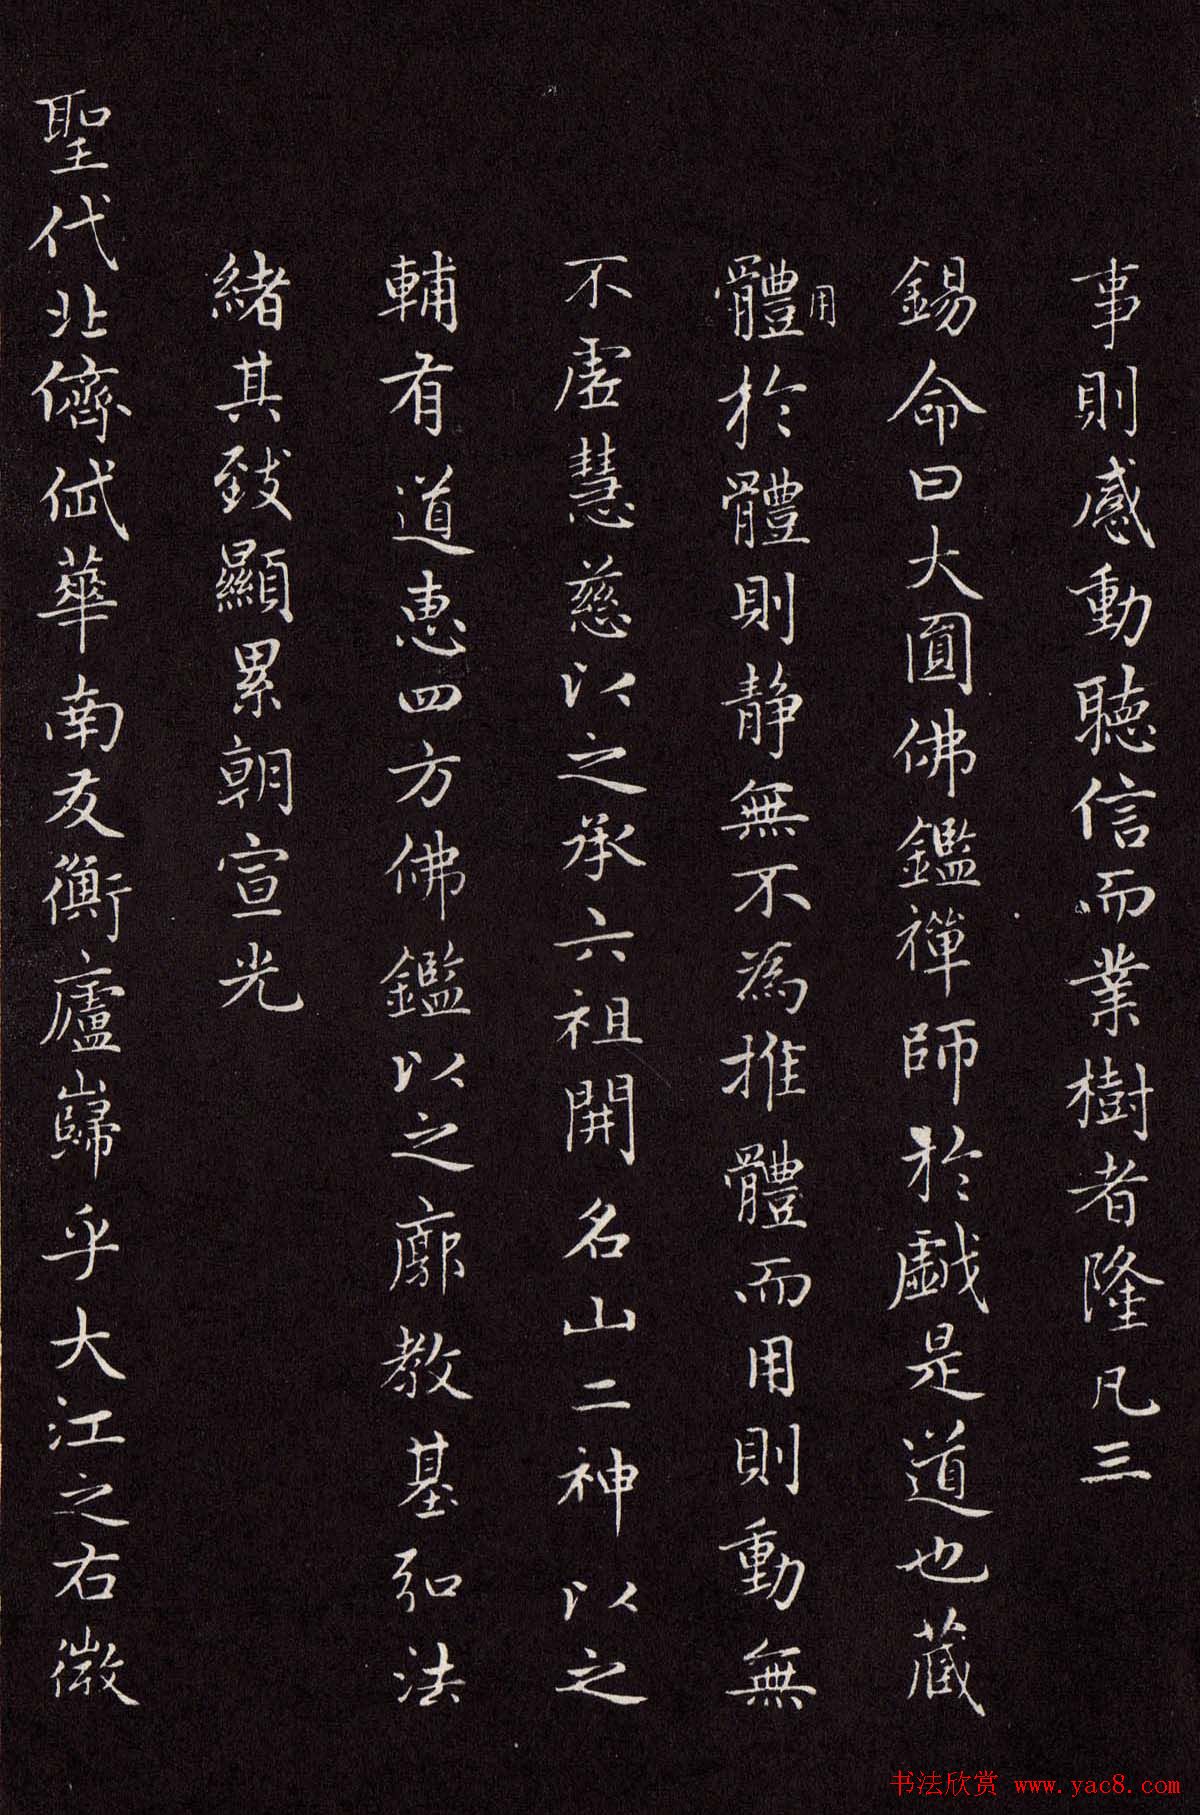 事則感動聽信而業樹者隆凡三
錫命曰大圓佛鑑禪師於戲是道也藏
體用於體則静無不為推體而用則動無
不虚慧慈以之承六祖開名山二神以之
輔有道惠四方佛鑑以之廓教基弘法
緒其致顯累朝宣光
聖代北儕岱華南友衡廬巋乎大江之右徵
书法欣赏 www.yac8.com